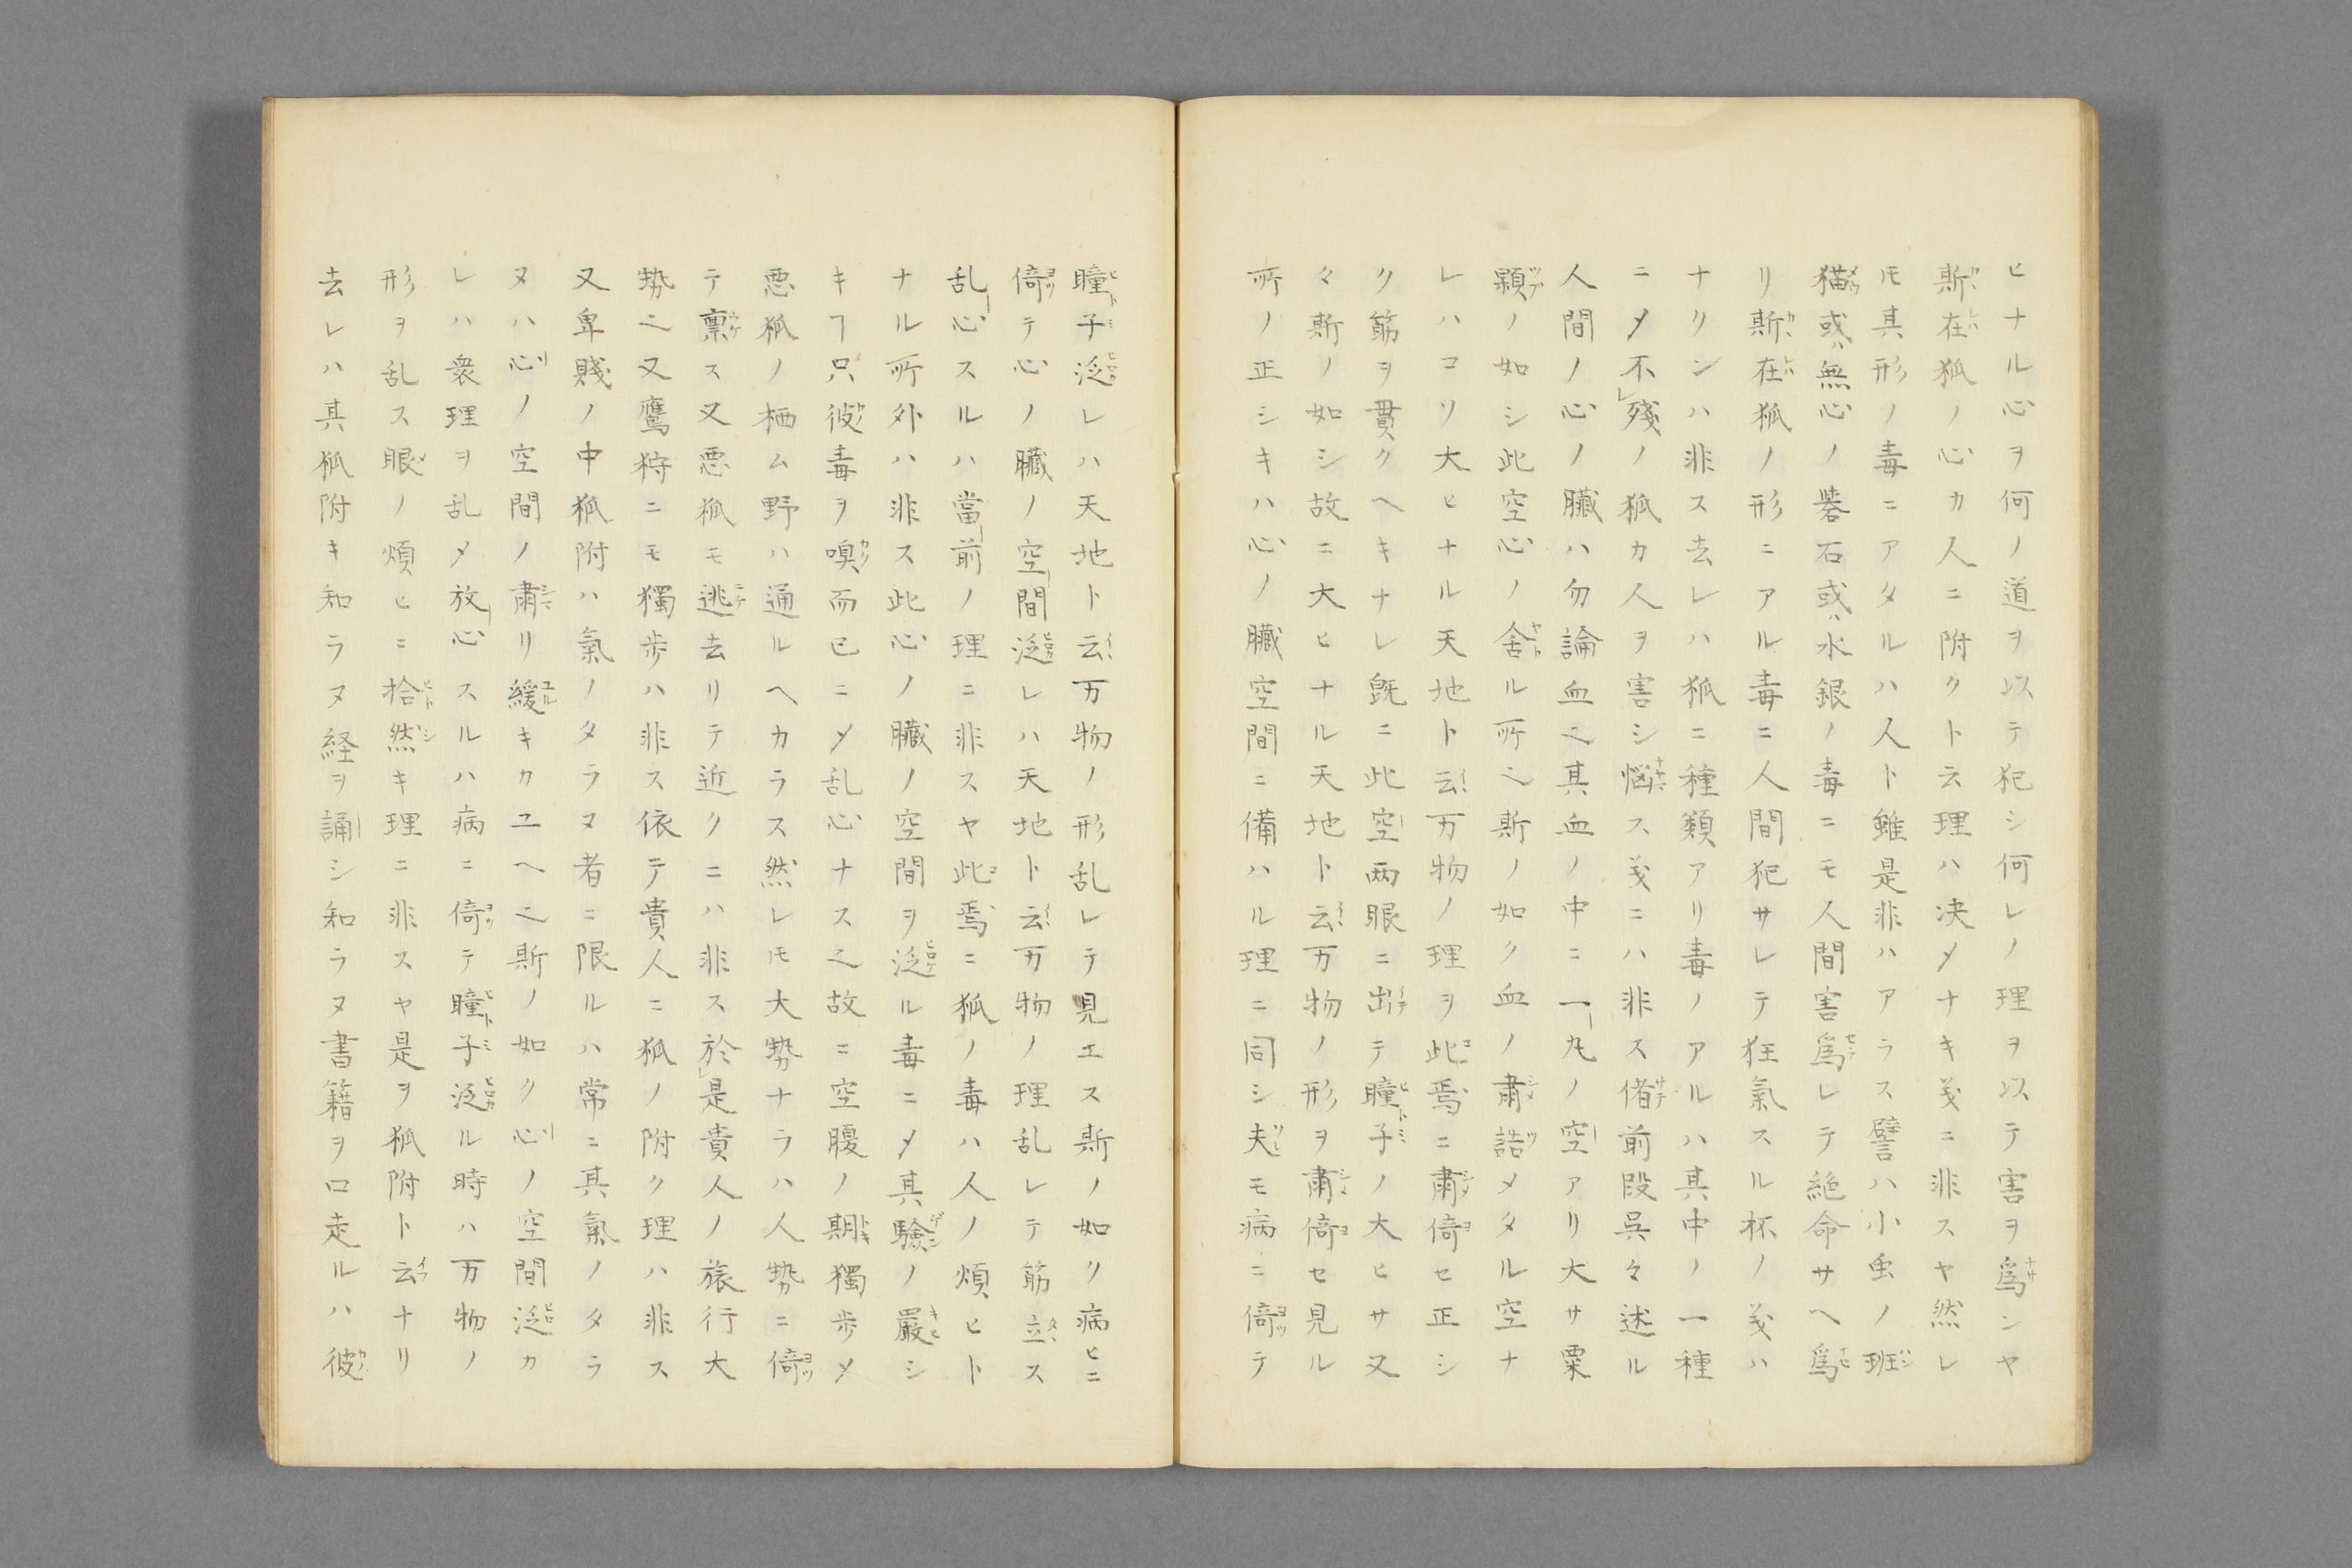 ヒナル心ヲ何ノ道ヲ以テ犯シ何レノ理ヲ以テ害ヲ爲ンヤ
斯在狐ノ心カ人ニ附クト云理ハ决〆ナキ義ニ非スヤ然レ
圧其形ノ毒ニアタルハ人ト雖是非ハアラス譬ハ小虫ノ班
猫或ハ無心ノ礜石或ハ水銀ノ毒ニモ人間害爲レテ絶命サヘ爲
リ斯在狐ノ形ニアル毒ニ人間犯サレテ狂氣スル杯ノ義ハ
ナクンハ非ス去レハ狐ニ種類アリ毒ノアルハ其中ノ一種
ニ〆不殘ノ狐カ人ヲ害シ悩ス義ニハ非ス偖前段呉々述ル
人間ノ心ノ臓ハ勿論血也其血ノ中ニ一丸ノ空アリ大サ粟
顆ノ如シ此空心ノ舍ル所也斯ノ如ク血ノ肅詰メタル空ナ
レハコソ大ヒナル天地ト云万物ノ理ヲ此焉ニ肅倚セ正シ
ク筋ヲ貫クヘキナレ既ニ此空両眼ニ出テ瞳子ノ大ヒサ又
々斯ノ如シ故ニ大ヒナル天地ト云万物ノ形ヲ肅倚セ見ル
所ノ正シキハ心ノ臓空間ニ備ハル理ニ同シ夫モ病ニ倚テ
瞳子泛レハ天地ト云万物ノ形乱レテ見エス斯ノ如ク病ヒニ
倚テ心ノ臓ノ空間泛レハ天地ト云万物ノ理乱レテ筋立ス
乱心スルハ當前ノ理ニ非スヤ此焉ニ狐ノ毒ハ人ノ煩ヒト
ナル所外ハ非ス此心ノ臓ノ空間ヲ泛ル毒ニ〆其驗ノ嚴シ
キヿ只彼毒ヲ嗅而已ニ〆乱心ナス也故ニ空腹ノ期獨歩〆
悪狐ノ栖ム野ハ通ルヘカラス然レ圧大勢ナラハ人勢ニ倚
テ稟ス又悪狐モ逃去リテ近クニハ非ス於是貴人ノ旅行大
勢也又鷹狩ニモ獨歩ハ非ス依テ貴人ニ狐ノ附ク理ハ非ス
又卑賤ノ中狐附ハ氣ノタラヌ者ニ限ルハ常ニ其氣ノタラ
ヌハ心ノ空間ノ肅リ緩キカユヘ也斯ノ如ク心ノ空間泛カ
レハ衆理ヲ乱〆放心スルハ病ニ倚テ瞳子泛ル時ハ万物ノ
形ヲ乱ス眼ノ煩ヒニ拾然キ理ニ非スヤ是ヲ狐附ト云ナリ
去レハ其狐附キ知ラヌ経ヲ誦シ知ラヌ書籍ヲ口走ルハ彼